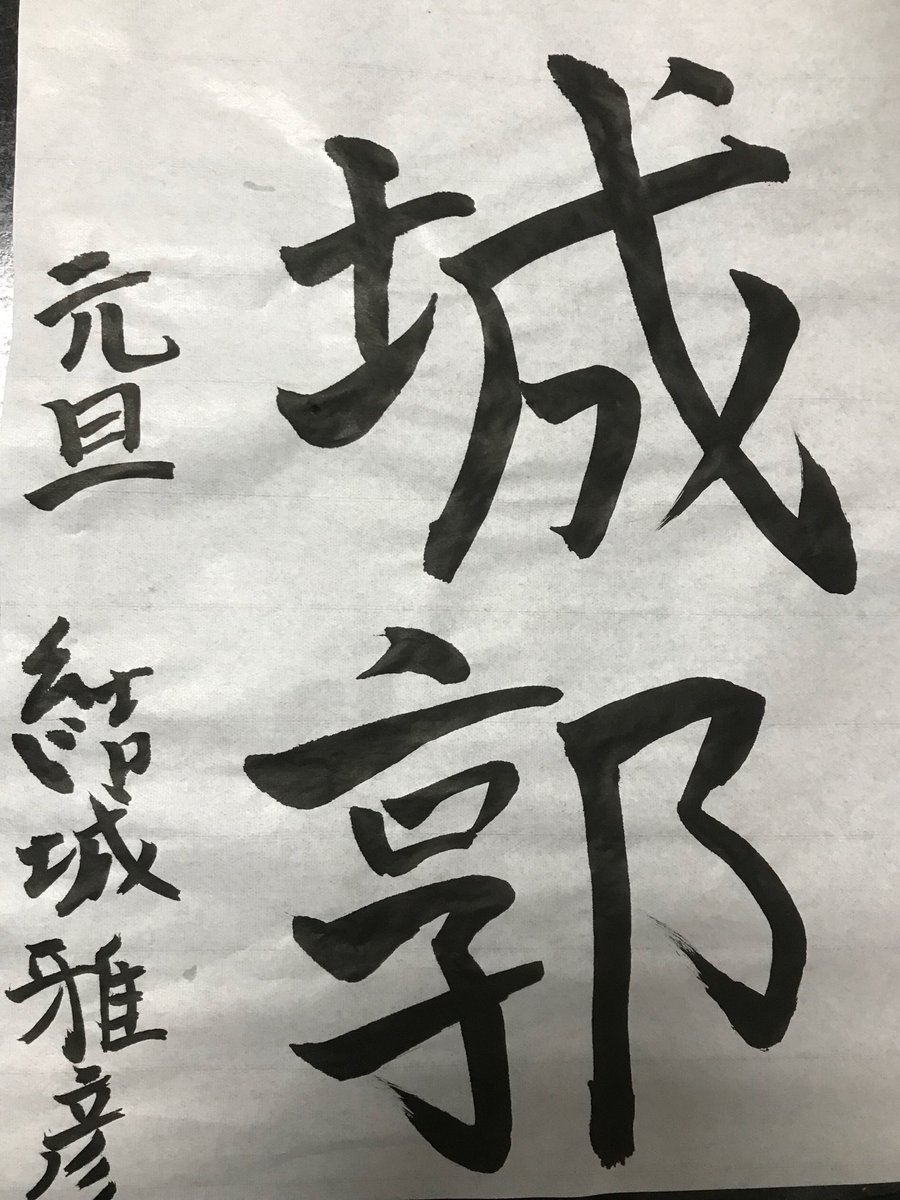 城郭
元旦 結城雅彦